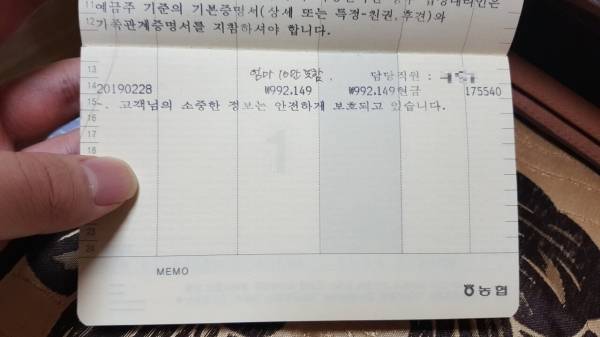 11 예금주 기준의 기본증명서(상세 또는 특정-친권,후견)와
12 가족관계증명서를 지참하셔야 합니다.
13 엄마 10만 포함. 담당직원 :
14 20190228 ₩992,149 ₩992,149현금 175540
15 고객님의 소중한 정보는 안전하게 보호되고 있습니다.
16
17
18
1
24
MEMO
농협